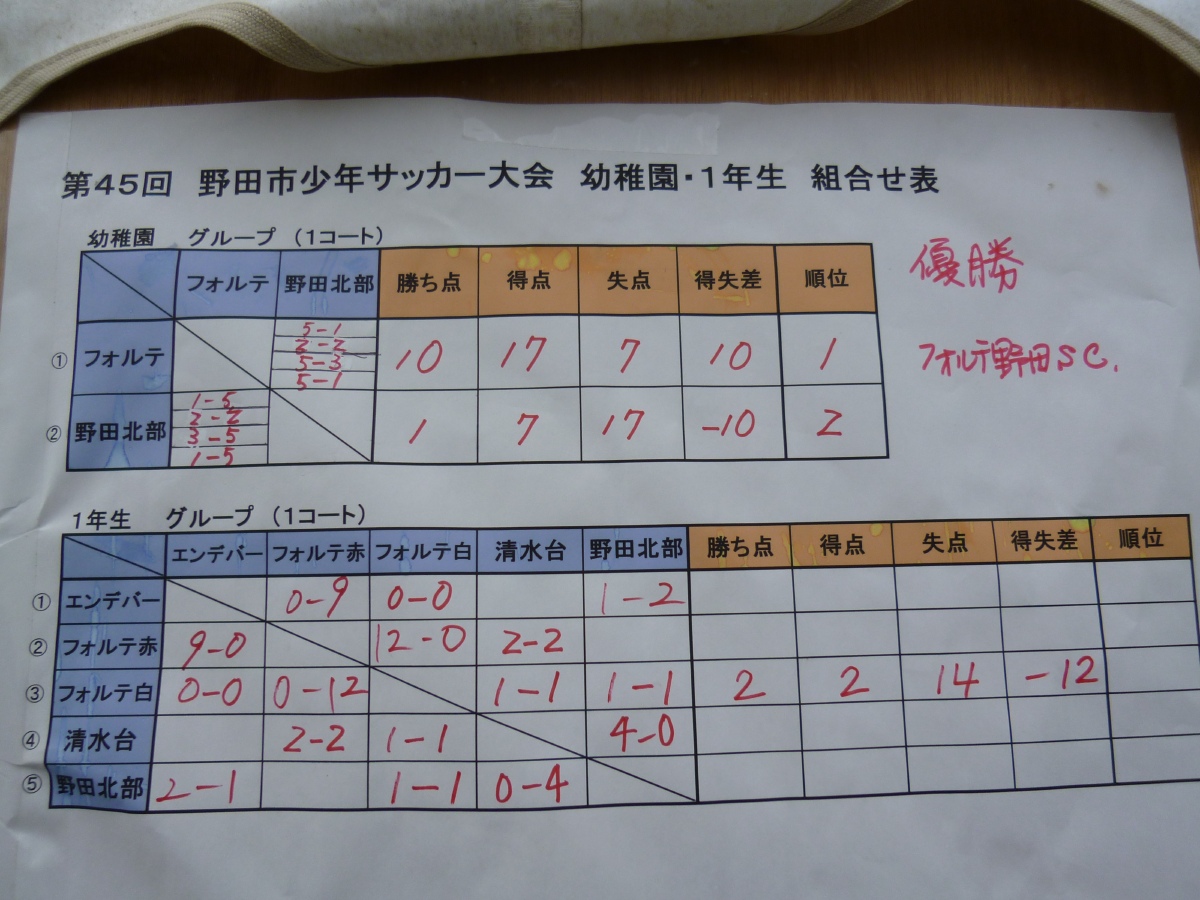 第45回 野田市少年サッカー大会 幼稚園・1年生 組合せ表
幼稚園 グループ (1コート)
フォルテ 野田北部 勝ち点 得点 失点 得失差 順位
① フォルテ 5-1 2-2 5-3 5-1 10 17 7 10 1
② 野田北部 1-5 2-2 3-5 1-5 1 7 17 -10 2
優勝
フォルテ野田SC.
1年生 グループ (1コート)
エンデバー フォルテ赤 フォルテ白 清水台 野田北部 勝ち点 得点 失点 得失差 順位
① エンデバー 0-9 0-0 1-2
② フォルテ赤 9-0 12-0 2-2
③ フォルテ白 0-0 0-12 1-1 1-1 2 2 14 -12
④ 清水台 2-2 1-1 4-0
⑤ 野田北部 2-1 1-1 0-4